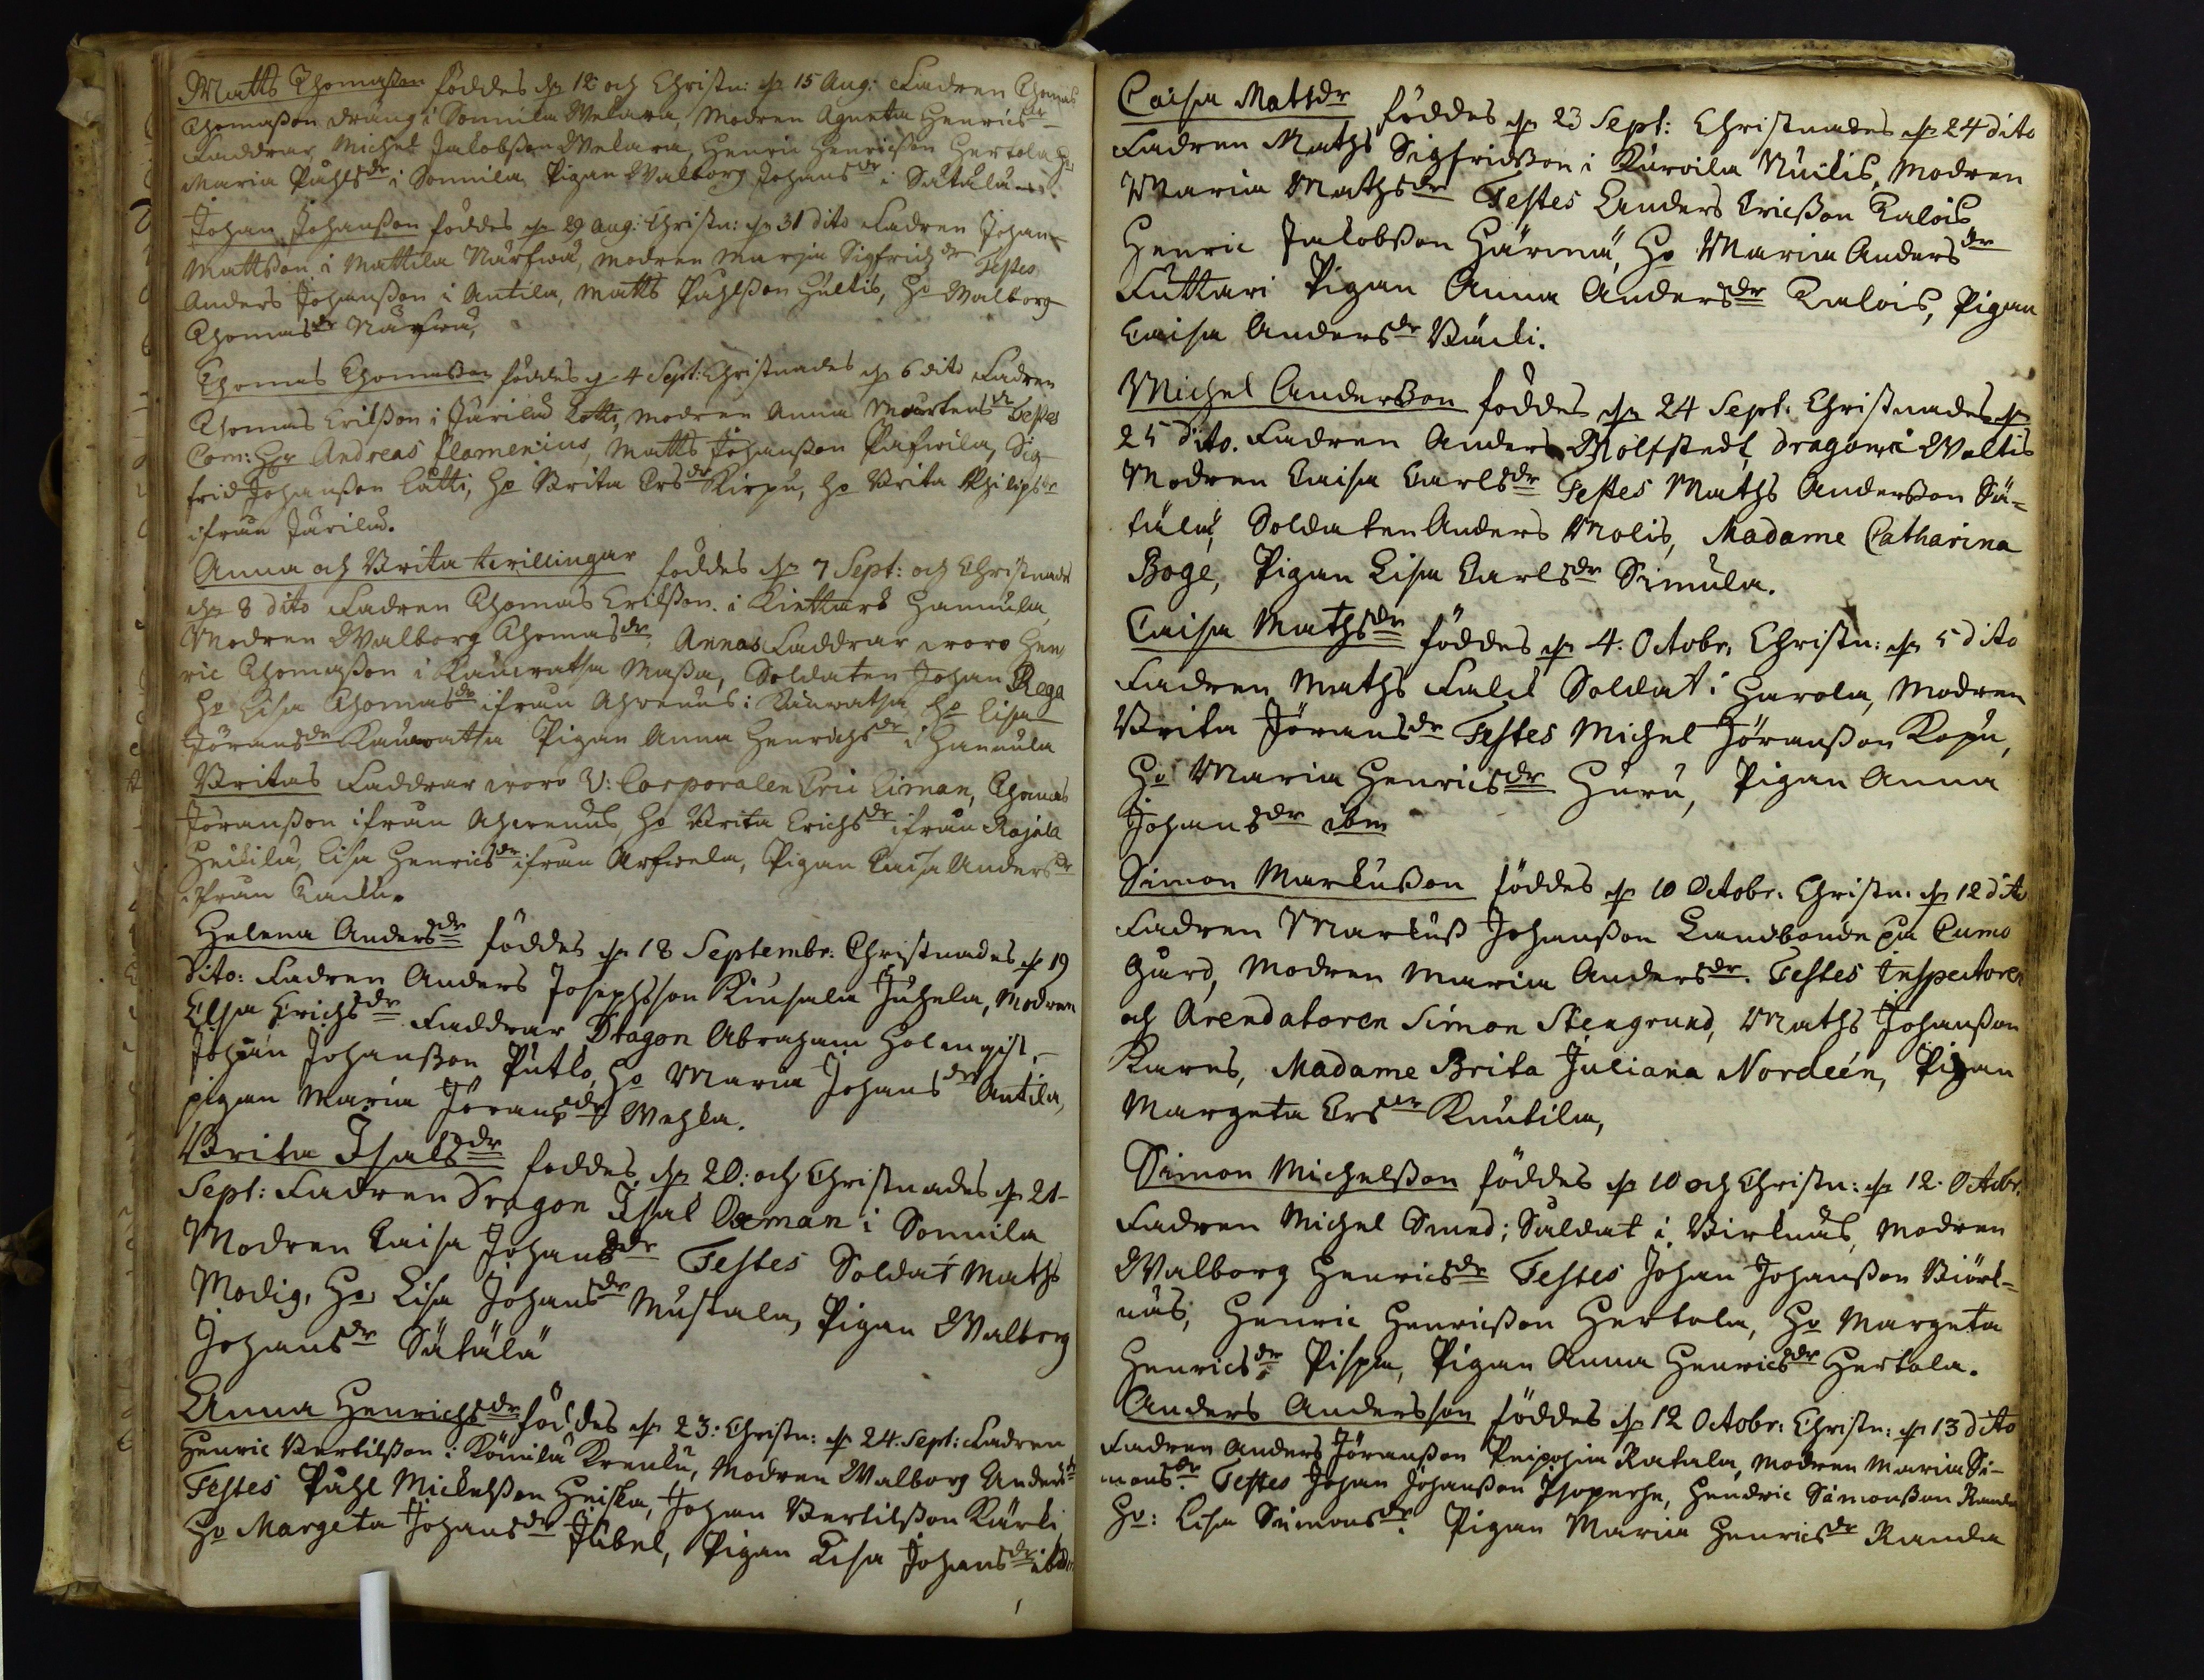 Matts Thomasson föddes d. 12 och Christn: d. 15 Aug: Fadren Thomas
Thomasson dräng i Sonnila Welara, Modren Agneta Henricsdr
Faddrar, Michel Jakobsson Welara, Henric Henricsson Hertola Ho
Maria Påhlsdr i Sonnila, Pigan Walborg Johansdr i Sätälä
Johan Johansson föddes d. 29 Aug: Christn: d. 31 dito Fadren Johan
Mattsson i Mattila Närfwä, modren Marja Sigfridsdr Testes
Anders Johansson i Antila, Matts Påhlsson Hultis, Ho Walborg
Thomasdr Närfwä,
Thomas Thomasson föddes d 4 Sept: Christnades d. 6 dito Fadren
Thomas Erikson i Järilä Lotti, modren Anna Mårtensdr Testes
Com: Hr Andreas Flamenius, Matts Johansson Pafwila, Sig-
frid Johansson Lätti, Ho Brita Ersdr Kirpu, Ho Brita Philipsdr
ifrån Järilä.
Anna och Brita twillingar föddes d. 7 Sept: och Christnades
d. 8 dito Fadren Thomas Erikson i Kiettars Hannula
Modren Walborg Thomasdr. Annas Faddrar woro Hen
ric Thomasson i Kauwatsa Massa, Soldaten Johan Rega
Ho Lisa Thomasdr ifrån Ahwenus i Kauwatsa Ho Lisa
Jöransdr Kauwatsa Pigan Anna Henrichsdr i Hannula
Britas Faddrar woro V: Corporalen Eric Liman, Thomas
Jöransson ifrån Ahwenus, Ho Brita Erichsdr ifrån Rajala
Heikilä, Lisa Henricsdr ifrån Arfwela, Pigan Caisa Andersdr
ifrån Kaukli.
Helena Andersdr föddes d. 18 Septembr: Christnades d. 19
Dito: Fadren Anders Josephsson Kiusala Juhela, Modren
Elsa Erichsdr Faddrar Dragon Abraham Holmqist,
Johan Johansson Putko, Ho Maria Johansdr Antila,
pigan Maria Jöransdr Wehka.
Brita Isaksdr föddes d. 20: och Christnades d. 21
Sept: Fadren Dragon Isak Oxman i Sonnila
Modren Caisa Johansdr Testes Soldat Maths
Modig, Ho Lisa Johansdr Mustala, Pigan Walborg
Johansdr Sätälä
Anna Henrichsdr föddes d. 23: Christn: d. 24. Sept: Fadren
Henric Bertilsson i Kömilä Krenku, Modren Walborg Andersdr
Testes Påhl Mickelsson Heiska, Johan Bertilsson Kärki
Ho Margeta Johansdr Jubel, Pigan Lisa Johansdr ibdm
Caisa Matsdr föddes d. 23 Sept: Christnades d. 24 dito
Fadren Maths Sigfridsson i Kurvila Nuikis, Modren
Maria Mathsdr Testes Anders Ericsson Kalois
Henric Jakobsson Härmä, Ho Maria Andersdr
Futtari Pigan Anna Andersdr Kalois, Pigan
Caisa Andersdr Väcki.
Michel Andersson föddes d. 24 Sept: Christnades d.
25 dito. Fadren Anders Rolfstedt, dragon i Waltis
Modren Caisa Carlsdr Testes Maths Andersson Sä-
tälä, Soldaten Anders Molis, Madame Catharina
Boge, Pigan Lisa Carlsdr Simula.
Caisa Mathsdr föddes d. 4. Octobr, Christn: d. 5 dito
Fadren Maths Falck Soldat i Harola, Modren
Brita Jöransdr Testes Michel Jöransson Kopu,
Ho Maria Henricsdr Huru, Pigan Anna
Johansdr ibm
Simon Markusson föddes d. 10 Octobr: Christn: d. 12 dito
Fadren Markus Johansson Landbonde på Cumo
gård, Modren Maria Andersdr. Testes Inspectoren
och Arendatoren Simon Stengrund, Maths Johansson
Kares, Madame Brita Juliana Nordeen, Pigan
Margeta Ersdr Knutila,
Simon Michelsson föddes d. 10 och Christn: d. 12. Octobr:
Fadren Michel Smed; Saldat i Birknäs, Modren
Walborg Henricsdr Testes Johan Johansson Biörk-
näs, Henric Henricsson Hertola, Ho Margeta
Henricsdr Pispa, Pigan Anna Henricsdr Hertola.
Anders Andersson föddes d. 12 Octobr: Christn: d. 13 dito
Fadren Anders Jöransson Peipohia Ratala, Modren Maria Si-
monsdr. Testes Johan Johansson Isoperhe, Hendric Simonsson Randa
Ho: Lisa Simonsdr. Pigan Maria Henricsdr Randa